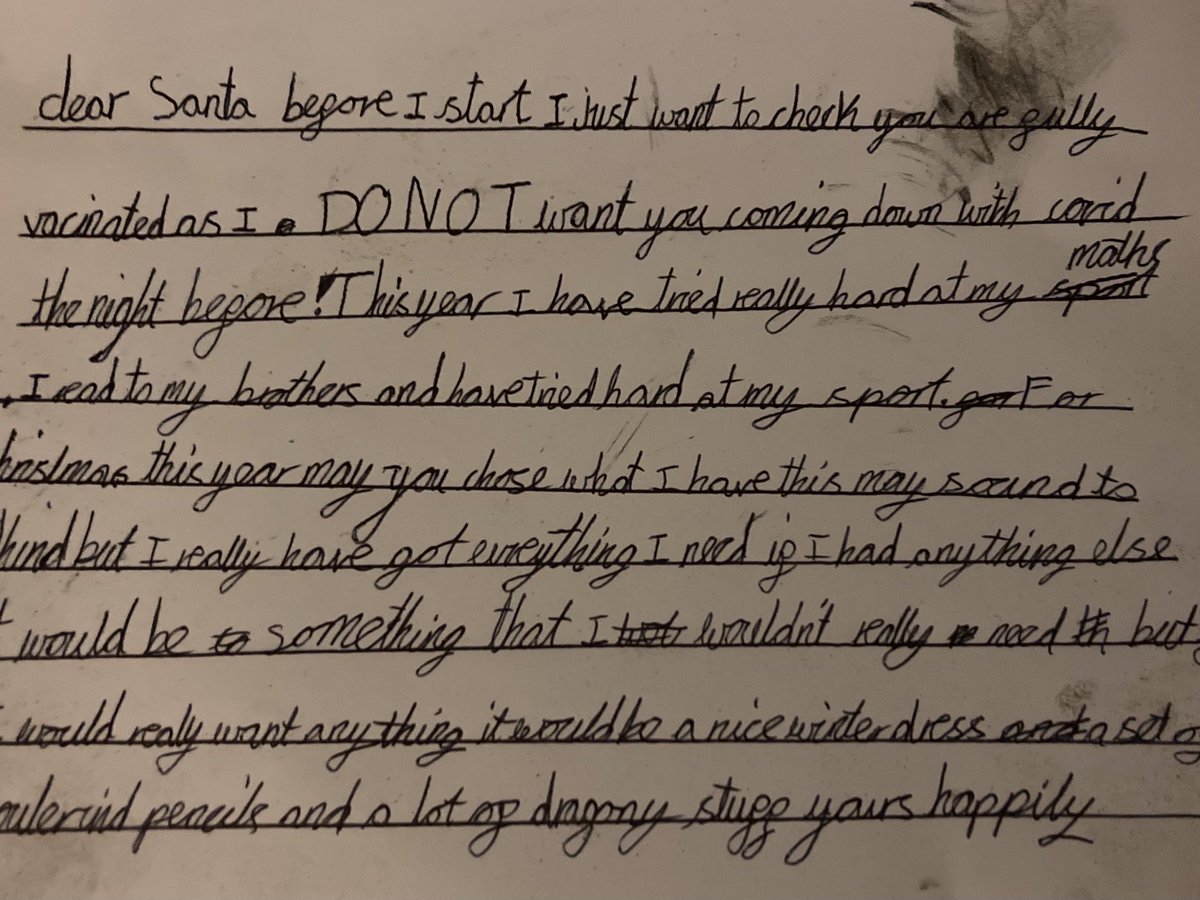 dear Santa before I start I just want to check you are fully
vacinated as I DO NOT want you coming down with covid
the night before! This year I have tried really hard at my maths
. I read to my brothers and have tried hard at my sport. For
hristmas this year may you chose what I have this may sound to
kind but I really have got evreything I need if I had anything else
t would be something that I wouldn't really need but
would realy want anything it would be a nice winter dress a set of
oulerind pencils and a lot of dragony stuff yours happily